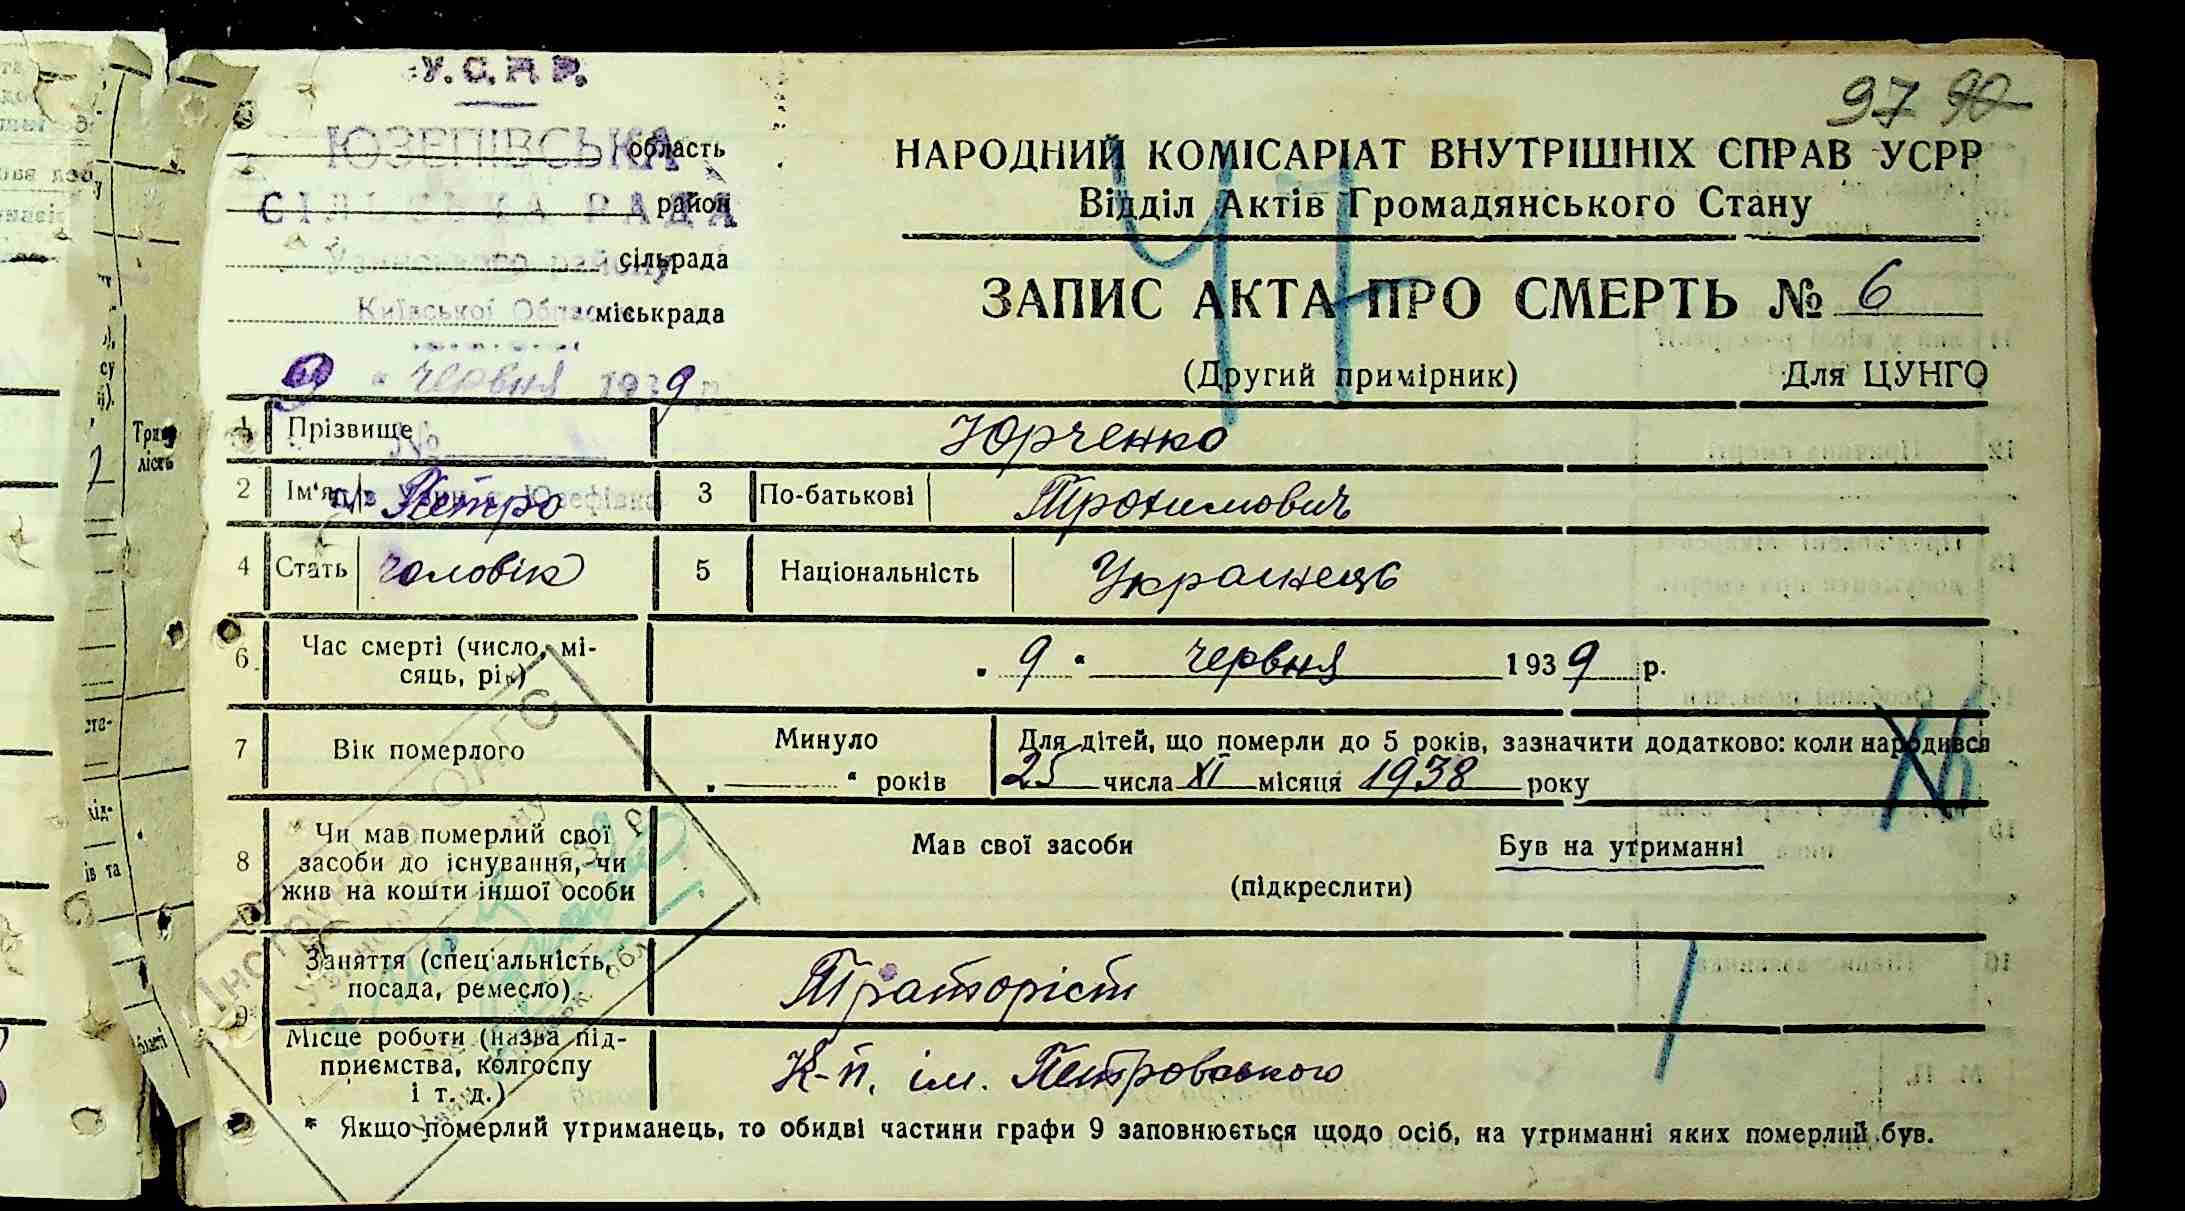 У.С.Р.Р.
97 90
ЮЗЕПІВСЬКА область
СІЛЬСЬКА РАДА район
Узинського району сільрада
Київської Області міськрада
9 " червня 1939 р.
НАРОДНИЙ КОМІСАРІАТ ВНУТРІШНІХ СПРАВ УСРР
Відділ Актів Громадянського Стану
ЗАПИС АКТА ПРО СМЕРТЬ № 6
(Другий примірник) Для ЦУНГО
1 Прізвище Юрченко
№
2 Ім'я Петро 3 По-батькові Трохимович
4 Стать чоловік 5 Національність Українець
6 Час смерті (число, мі-
сяць, рік) „ 9 " червня 1939 р.
7 Вік померлого Минуло
„ " років
Для дітей, що померли до 5 років, зазначити додатково: коли народився
25 числа XI місяця 1938 року
8 Чи мав померлий свої
засоби до існування, чи
жив на кошти іншої особи
Мав свої засоби Був на утриманні
(підкреслити)
9 Заняття (спеціальність,
посада, ремесло) Траторіст
Місце роботи (назва під-
приємства, колгоспу
і т. д.) К-п. ім. Петровського
* Якщо померлий утриманець, то обидві частини графи 9 заповнюється щодо осіб, на утриманні яких померлий був.